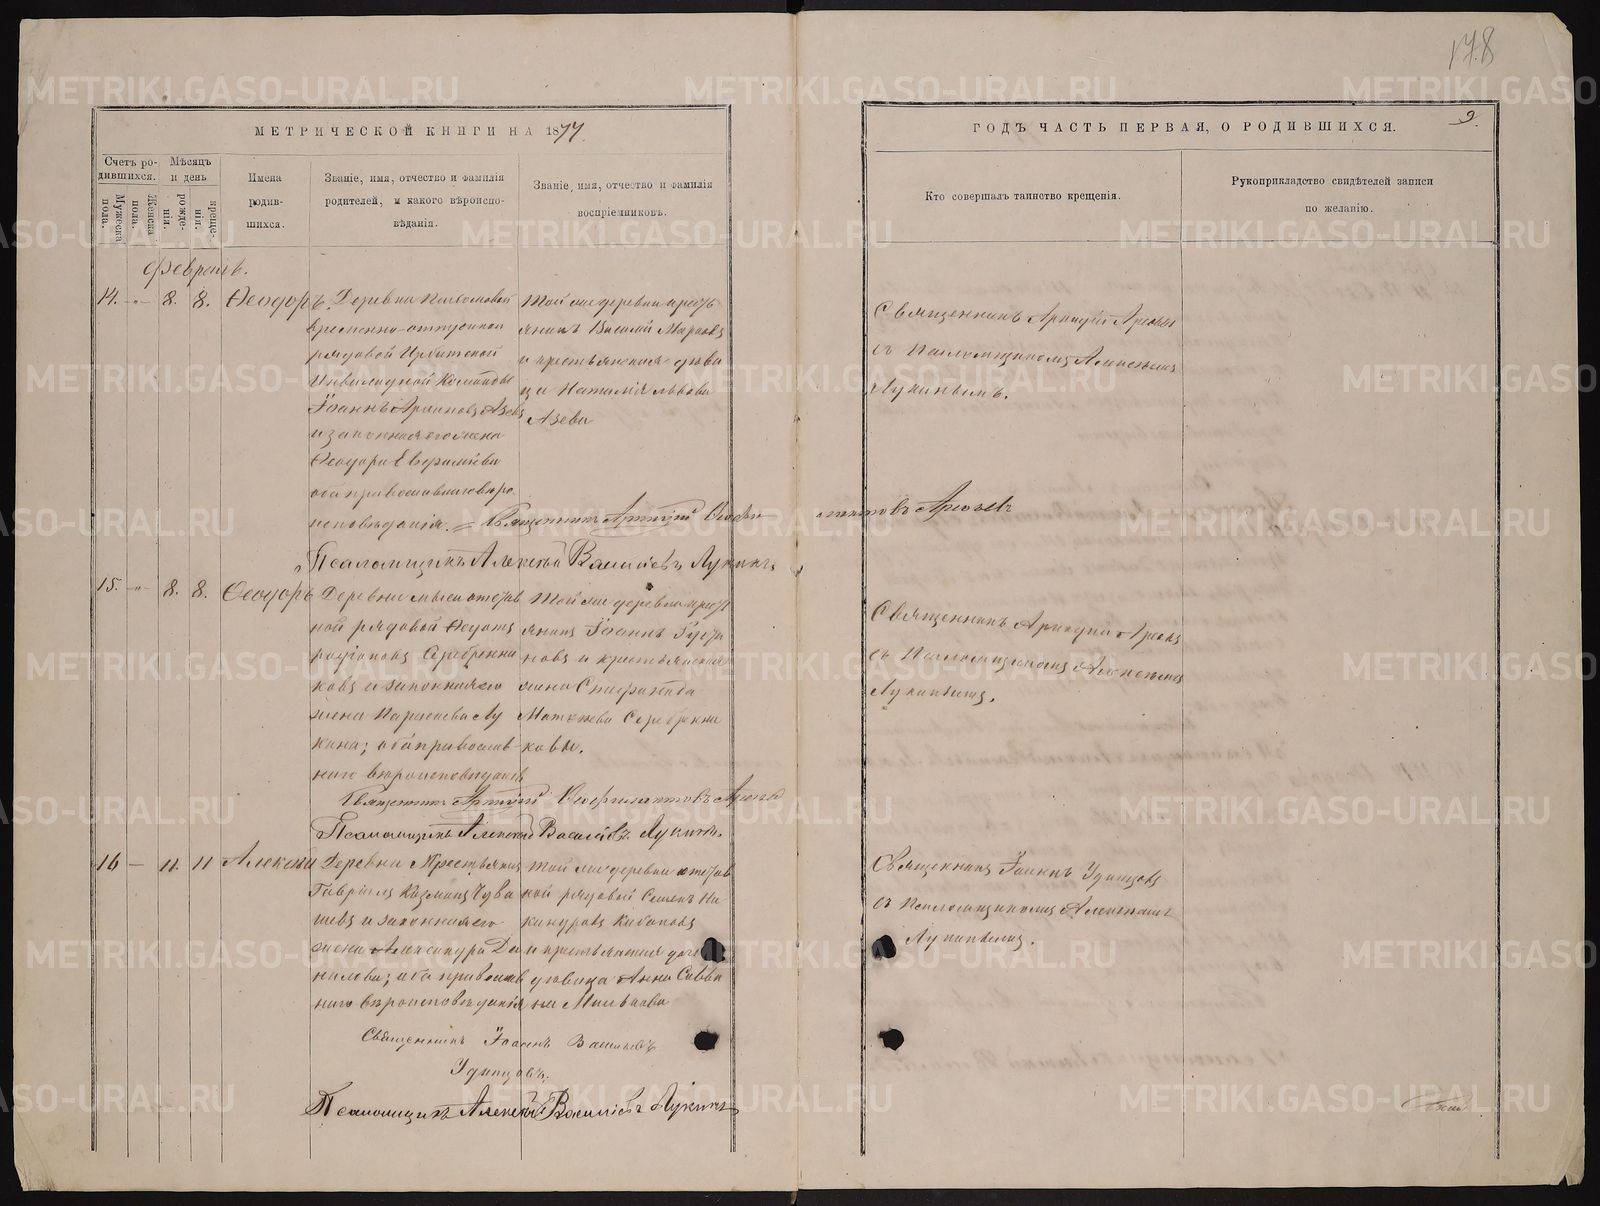 178
МЕТРИЧЕСКОЙ КНИГИ НА 1877
ГОДЪ ЧАСТЬ ПЕРВАЯ, О РОДИВШИХСЯ.
9.
Счетъ ро-
дившихся.
Мужеска
пола.
Женска
пола.
Мѣсяцъ
и день
рожде-
нія.
креще-
нія.
Имена
родив-
шихся.
Званіе, имя, отчество и фамилія
родителей, и какого вѣроиспо-
вѣданія.
Званіе, имя, отчество и фамилія
воспріемниковъ.
Кто совершалъ таинство крещенія.
Рукоприкладство свидѣтелей записи
по желанію.
Февраль.
14. -"- 8. 8. Ѳеодоръ.
Деревни
временно-отпускной
рядовой Ирбитской
Инвалидной Команды
Іоаннъ
и законная его жена
Ѳеодора
оба православнаго вѣро
исповѣданія.
Той же деревни кресть
янинъ Василій
и крестьянская дѣви
ца Наталія Львова
Азева
Священникъ Аркадій
съ Псаломщикомъ Алексѣемъ
Лукинымъ.
Священникъ
Псаломщикъ Алексѣй Васильевъ Лукинъ.
15. -"- 8. 8. Ѳеодоръ
Деревни отстав
ной рядовой
Родіоновъ Серебренни
ковъ и законная его
жена Параскева Лу
кина; оба православ
наго вѣроисповѣданія
Той же деревни кресть
янинъ Іоаннъ
новъ и крестьянская
жена
Матвѣева Серебренни
кова.
Священникъ Аркадій
съ Псаломщикомъ Алексѣемъ
Лукинымъ.
Священникъ
Псаломщикъ Алексѣй Васильевъ Лукинъ.
16 — 11. 11 Алексѣй
Деревни Крестьянинъ
Гавріилъ Козминъ Чува
шевъ и законная его
жена Александра Да
нилова; оба православ
наго вѣроисповѣданія
Той же деревни отстав
ной рядовой Семенъ Ни
каноровъ Кабаковъ
и крестьянская дочь
дѣвица Анна Савви
на
Священникъ Іоаннъ Удинцовъ
съ Псаломщикомъ Алексѣемъ
Лукинымъ.
Священникъ Іоаннъ Васильевъ
Удинцовъ.
Псаломщикъ Алексѣй Васильевъ Лукинъ
METRIKI.GASO-URAL.RU